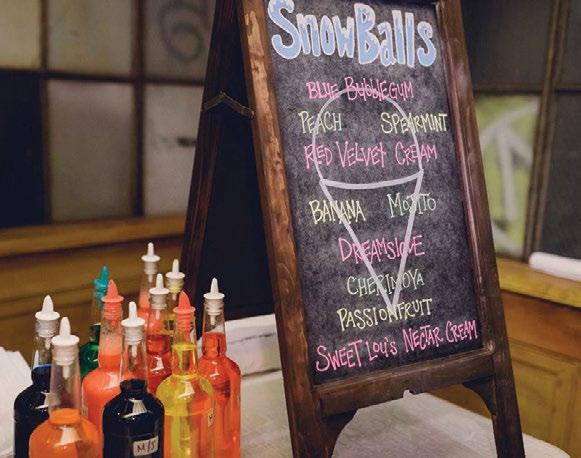 SNOWBALLS
BLUE BUBBLEGUM
PEACH SPEARMINT
RED VELVET CREAM
BANANA MOJITO
DREAMSICLE
CHERIMOYA
PASSIONFRUIT
SWEET LOU'S NECTAR CREAM